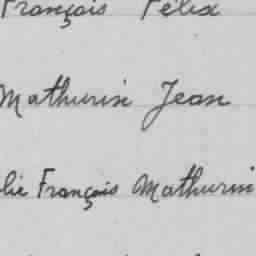 François Félix
Mathurin Jean
lie François Mathurin